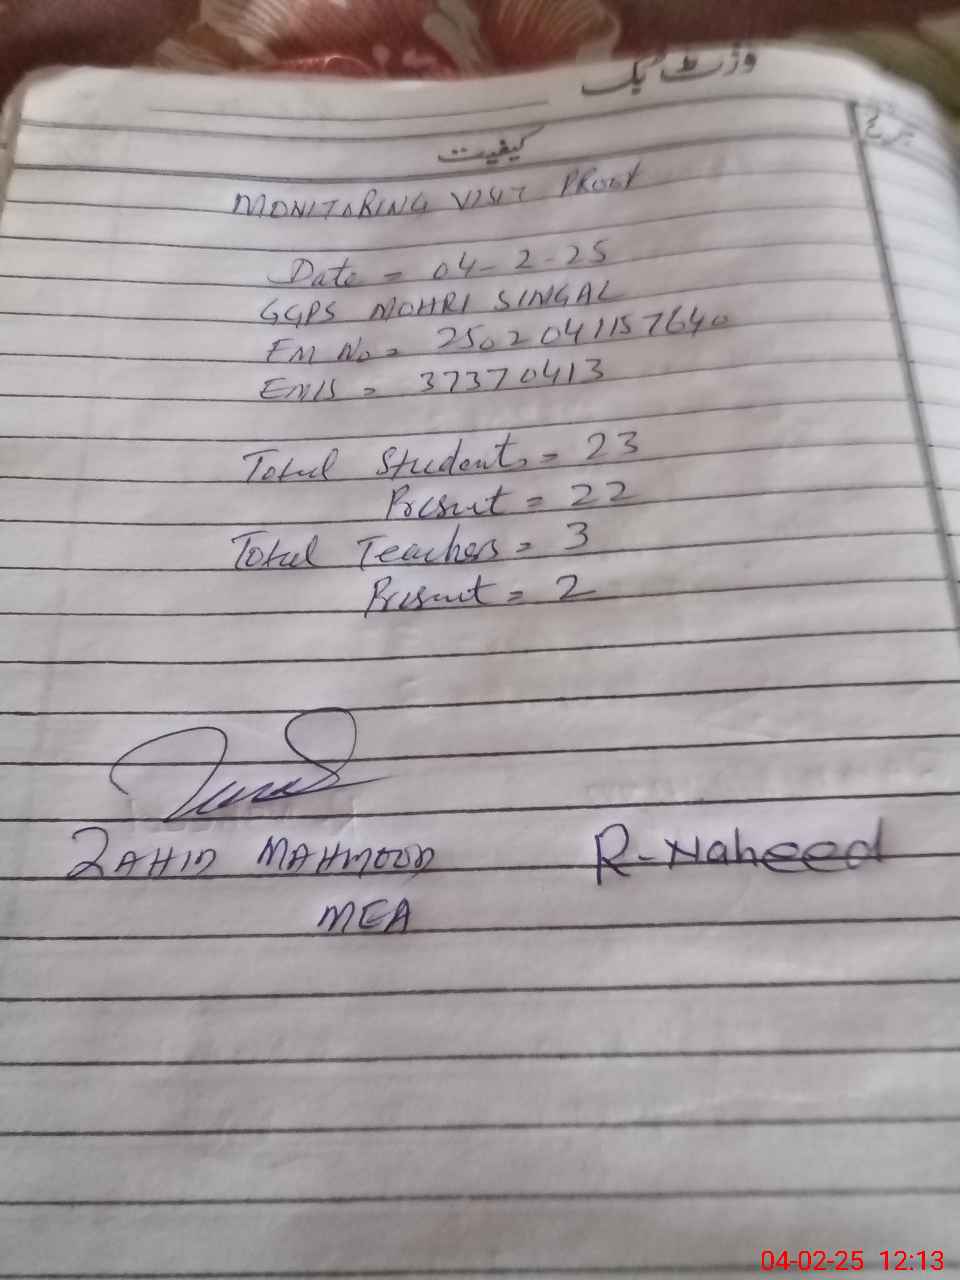 وزٹ بک
کیفیت
MONITARING VISIT PROOF
Date = 04-2-25
GGPS MOHRI SINGAL
EM No = 2502041157640
EMIS = 37370413
Total Students = 23
Present = 22
Total Teachers = 3
Present = 2
ZAHID MAHMOOD
R-Naheed
MEA
04-02-25 12:13